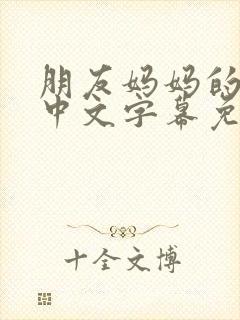 朋友妈妈的
中文字幕免
十全文博